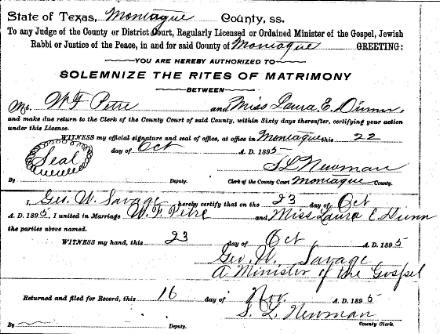 State of Texas, Montague County, ss.
To any Judge of the County or District Court, Regularly Licensed or Ordained Minister of the Gospel, Jewish
Rabbi or Justice of the Peace, in and for said County of Montague GREETING:
YOU ARE HEREBY AUTHORIZED TO
SOLEMNIZE THE RITES OF MATRIMONY
BETWEEN
Mr. W F Petre and Miss Laura E. Dunn,
and make due return to the Clerk of the County Court of said County, within Sixty days thereafter, certifying your action
under this License.
WITNESS my official signature and seal of office, at office in Montague this 22
day of Oct A.D. 1895
Seal
S L Newman
By Deputy. Clerk of the County Court Montague County.
I, Geo. W. Savage hereby certify that on the 23 day of Oct
A. D. 1895, I united in Marriage W. F. Petre and Miss Laura E Dunn
the parties above named.
WITNESS my hand, this 23 day of Oct A. D. 1895
Geo. W. Savage
A Minister of the Gospel
Returned and filed for Record, this 16 day of Nov. A. D. 1895
S. L. Newman
By Deputy. County Clerk.